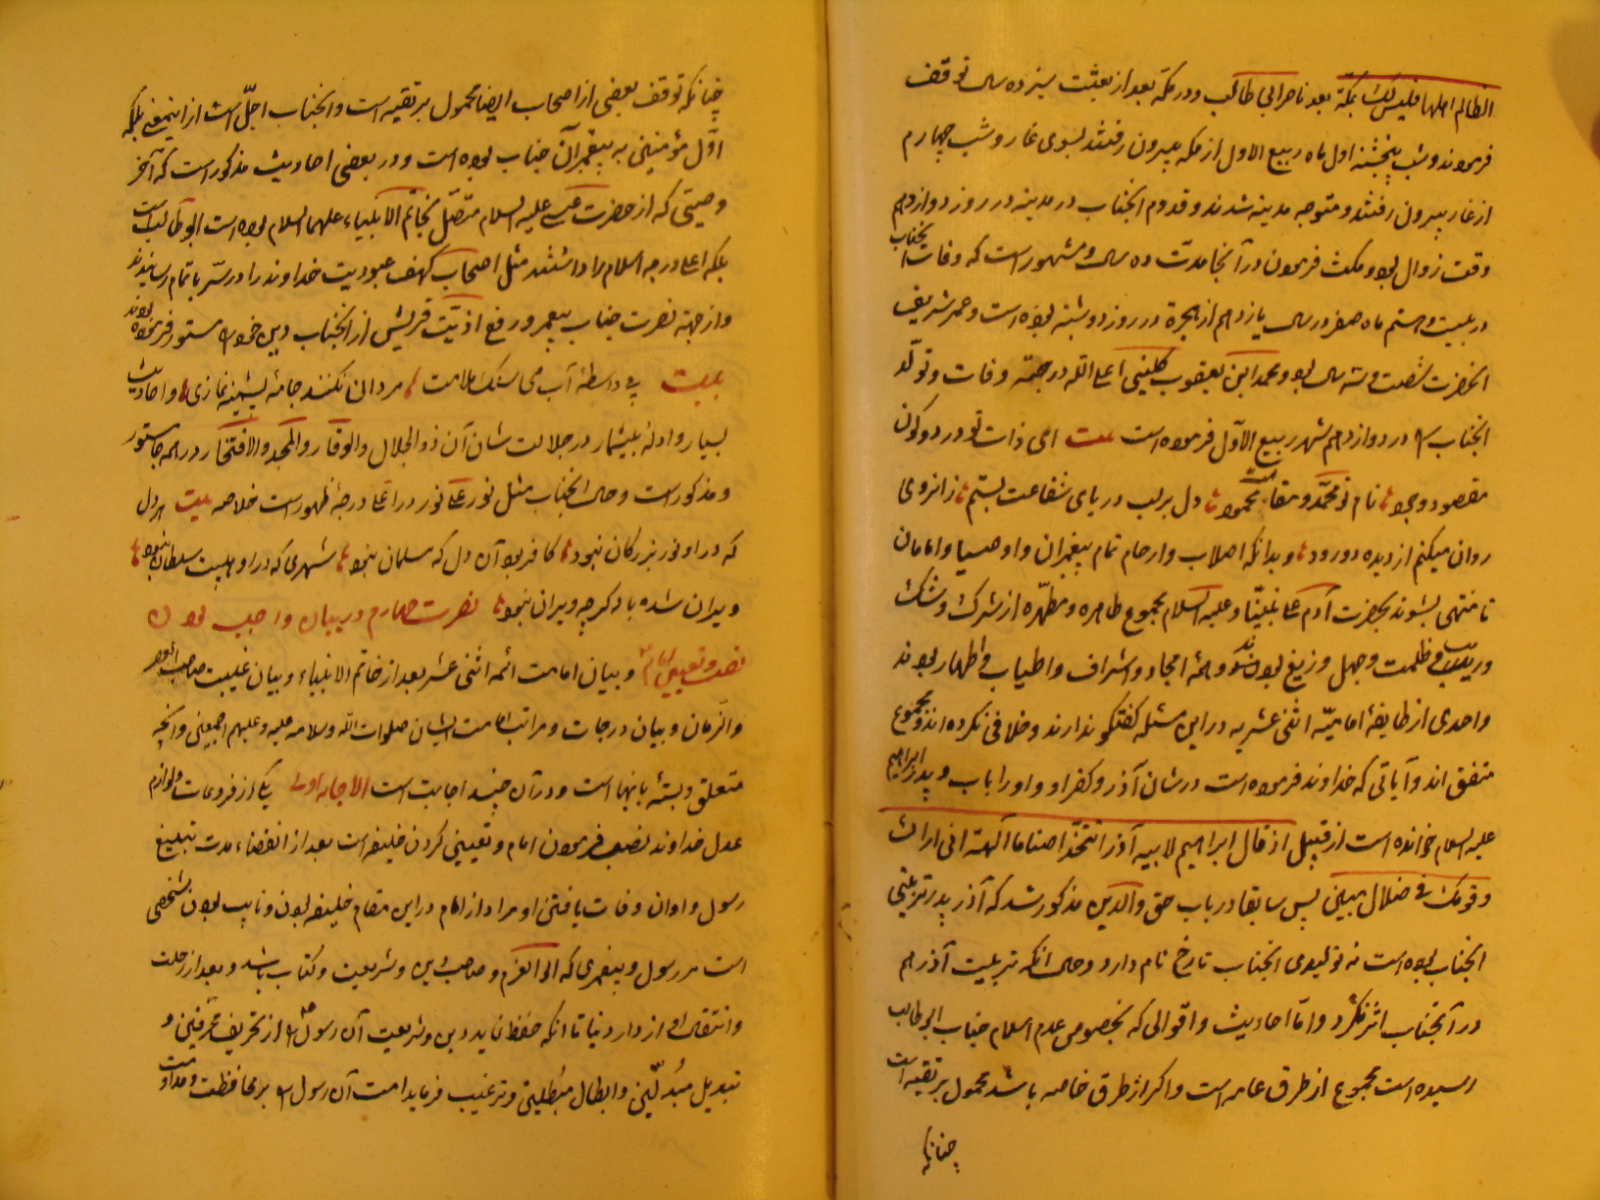 الظالم اهلها فلیس لک بمکّة بعد ناصر ابی طالب و در مکّه بعد از بعثت سیزده سال توقف
فرمودند و شب پنجشنبه اول ماه ربیع الاول از مکه بیرون رفتند بسوی غار و شب چهارم
از غار بیرون رفتند و متوجه مدینه شدند و قدوم آنجناب در مدینه در روز دوازدهم
وقت زوال بود و مکث فرمودن در آنجا مدّت ده سال و مشهور است که وفات آنجناب
در بیست و هشتم ماه صفر در سال یازدهم از هجرة در روز دوشنبه بوده است و عمر شریف
آنحضرت شصت و سه سال بود و محمد ابن یعقوب کلینی اعلی الله درجته وفات و تولّد
آنجناب را در دوازدهم شهر ربیع الاوّل فرموده است بیت ای ذات تو در دو کون
مقصود وجود نام تو محمّد و مقامت محمود دل بر لب دریای شفاعت بستم زانروی
روان میکنم از دیده دو رود و بدانکه اصلاب و ارحام تمام پیغمبران و اوصیا و امامان
تا منتهی بشوند بحضرت آدم علی نبیّنا و علیه السلام مجموع طاهره و مطهّره از شرک و شک
و ریب و ظلمت و جهل و زیغ بودند و همهٔ امجاد و اشراف و اطیاب و اطهار بودند
واحدی از طایفهٔ امامیّه اثنی عشریه در این مسئله گفتگو ندارند و خلافی نکرده اند و مجموع
متفق اند و آیاتی که خداوند فرموده است در شان آذر و کفر او و او را باب و پدر ابراهیم
علیه السلام خوانده است از قبیل اذ قال ابراهیم لابیه آذر اتتخذ اصناما آلهة انی اراک
و قومک فی ضلال مبین پس سابقا در باب حق والدین مذکور شد که آذر پدر تربیتی
آنجناب بوده است نه تولیدی آنجناب تارخ نام دارد و حال آنکه تربیت آذر هم
در آنجناب اثر نکرد و امّا احادیث و اقوالی که بخصوص عدم اسلام جناب ابو طالب
رسیده است مجموع از طرق عامه است و اگر از طرق خاصه باشد محمول بر تقیه است
چنانکه
چنانکه توقف بعضی از اصحاب ایضا محمول بر تقیه است و آنجناب اجلّ است از اینمعنی بلکه
اوّل مؤمنین به پیغمبر آن جناب بوده است و در بعضی احادیث مذکور است که آخر
وصیّی که از حضرت عیسی علیه السلام متصّل بخاتم الانبیاء علیهما السلام بوده است ابو طالب است
بلکه اعلی درجه اسلام را داشتند مثل اصحاب کهف عبودیت خداوند را در سرّ باتمام رسانیدند
و از جهة نصرت جناب پیغمبر و رفع اذیّت قریش از آنجناب دین خود را مستور فرموده بودند
بیت پی واسطهٔ آب می سنگ ملامت مردان نکنند جامهٔ پشمینه نمازی و احادیث
بسیار و ادلهٔ بیشمار در جلالت شان آن ذو الجلال والوقار والمجد والافتخار در همه جا مستور
و مذکور است و حال آنجناب مثل نور علی نور در اعلی درجهٔ ظهور است خلاصه بیت هر دل
که در او نور بزرگان نبود کافر بود آن دل که مسلمان نبود شهری که در او هیبت سلطان نبود
ویران شده باد گرچه ویران نبود نصرت چهارم در بیان واجب بودن
نصب و تعیین امام و بیان امامت ائمه اثنی عشر بعد از خاتم الانبیاء و بیان غیبت صاحب العصر
والزمان و بیان درجات و مراتب امامت ایشان صلوات الله و سلامه علیه و علیهم اجمعین و آنچه
متعلق و بسته باینها است و در آن چند اجابت است الاجابه اولی یکی از فروعات و لوازم
عدل خداوند نصب فرمودن امام و تعیین کردن خلیفه است بعد از انقضاء مدت تبلیغ
رسول و اوان وفات یافتن او مراد از امام در این مقام خلیفه بودن و نایب بودن شخصی
است مر رسول و پیغمبری که اولی العزم و صاحب دین و شریعت و کتاب باشد و بعد از رحلت
و انتقال او از دار دنیا تا آنکه حفظ نماید دین و شریعت آن رسول را از تحریف محرّفین و
تبدیل مبدّلین و ابطال مبطلین و ترغیب فرماید امت آن رسول را بر محافظت و مداومت